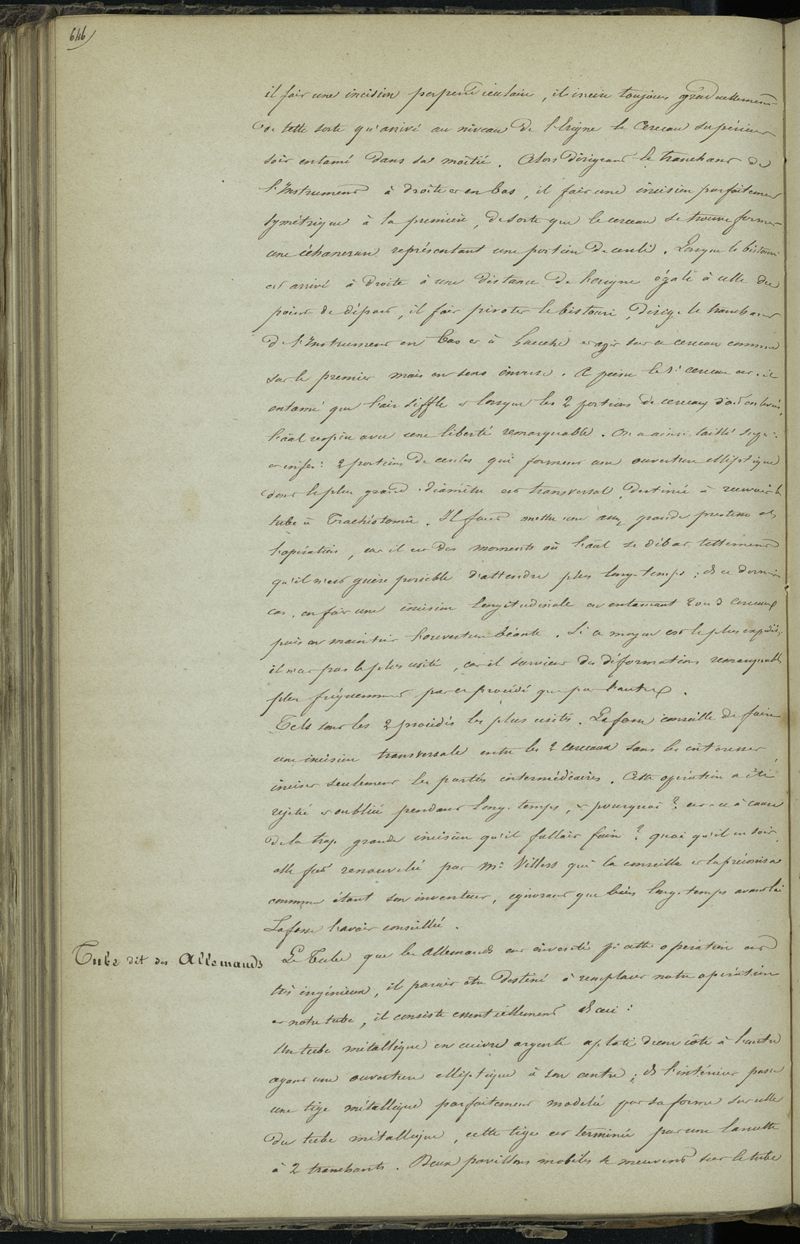 646)
il fait une incision perpendiculaire, il incise toujours graduellement
de telle sorte qu'arrivé au niveau de l'Erigne le Cerceau supérieur
soit entamé dans sa moitié. Alors dirigeant le tranchant de
l'Instrument à droite et en bas, il fait une incision parfaitement
symétrique à la première, de sorte que le cerceau se trouve former
une échancrure représentant une portion de cercle. Lorsque le bistouri
est arrivé à droite à une distance de l'erigne égale à celle du
point de départ, il fait pivoter le bistouri, dirige le tranchant
de l'Instrument en bas et à Gauche et agit sur ce cerceau comme
sur le premier mais en sens inverse. A peine le 1er cerceau est-il
entamé que l'air siffle et lorsque les 2 portions de cerceaux sont enlevés,
l'aal respire avec une liberté remarquable. On a ainsi taillé
2 portions de cercles qui forment une ouverture elliptique
dont le plus grand diamètre est transversal, destinée à recevoir le
tube à Trachéotomie. Il faut mettre une assez grande prestesse
l'opération, car il est des moments où l'aal se débat tellement
qu'il n'est guère possible d'attendre plus long-temps; ds ce dernier
cas, on fait une incision longitudinale en entamant 2 ou 3 cerceaux
puis on maintient l'ouverture béante. Si ce moyen est le plus expéditif,
il n'est pas le plus usité, car il survient des déformations remarquables
plus fréquemment par ce procédé que par l'autre.
Tels sont les 2 procédés les plus usités. Lafosse conseille de faire
une incision transversale entre les 2 cerceaux sans les intéresser
inciser seulement les parties intermédiaires. Cette opération a été
rejetée et oubliée pendant long-temps, et pourquoi? est-ce à cause
de la trop grande incision qu'il fallait faire? quoi qu'il en soit,
elle fut renouvelée par Mr Villers qui la conseilla et la préconisa
comme étant son inventeur, ignorant que bien long-temps avant lui
Lafosse l'avait conseillée.
Tube dit des Allemands
Le Tube que les Allemands ont inventé pr cette opération est
très ingénieux, il paraît être destiné à remplacer notre opération
et notre tube, il consiste essentiellement ds ceci:
Un tube métallique en cuivre argenté aplati d'un côté à l'autre
ayant une ouverture elliptique à son centre; ds l'intérieur passe
une tige métallique parfaitement modelée par sa forme sur celle
du tube métallique, cette tige est terminée par une lancette
à 2 tranchants. Deux pavillons mobiles se meuvent sur le tube